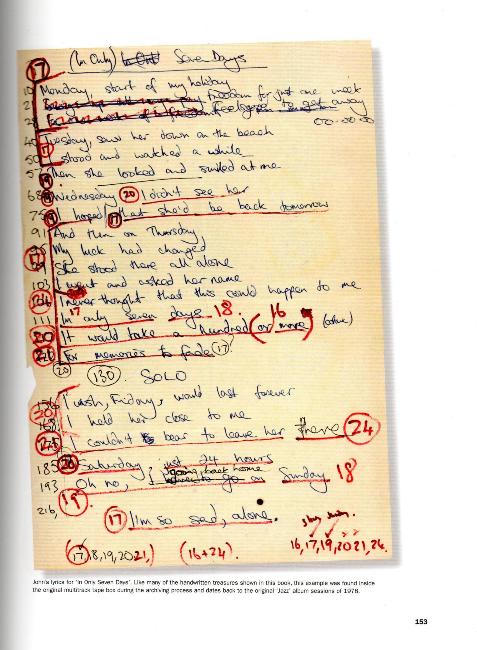 17 (In Only) In Only Seven Days
Monday, start of my holiday
freedom for just one week
Feels good to get away
Tuesday, saw her down on the beach
50 I stood and watched a while
57 Then she looked and smiled at me
68 Wednesday 20 I didn't see her
75 I hoped 17 that she'd be back tomorrow
91 And then on Thursday
My luck had changed
She stood there all alone
103 I went and asked her name
I never thought that this could happen to me
111 In only 17 seven days 18. 16
20 It would take a hundred (or more)
For memories to fade 17
20 130. SOLO
I wish, Friday, would last forever
I held her close to me
I couldn't bear to leave her there 24
185 20 Saturday just 24 hours
193 Oh no, going back home on Sunday 18
19.
216, 17 I'm so sad, alone.
16, 17, 19, 20 21, 24.
(17, 18, 19, 20 21,) (16+24).
John's lyrics for 'In Only Seven Days'. Like many of the handwritten treasures shown in this book, this example was found inside
the original multitrack tape box during the archiving process and dates back to the original 'Jazz' album sessions of 1978.
153